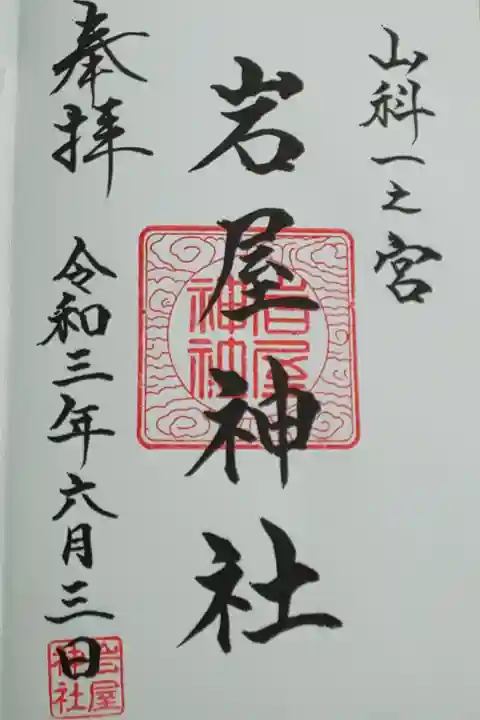 山科一之宮
岩屋神社
岩屋
神社
奉拝
令和三年六月三日
岩屋
神社